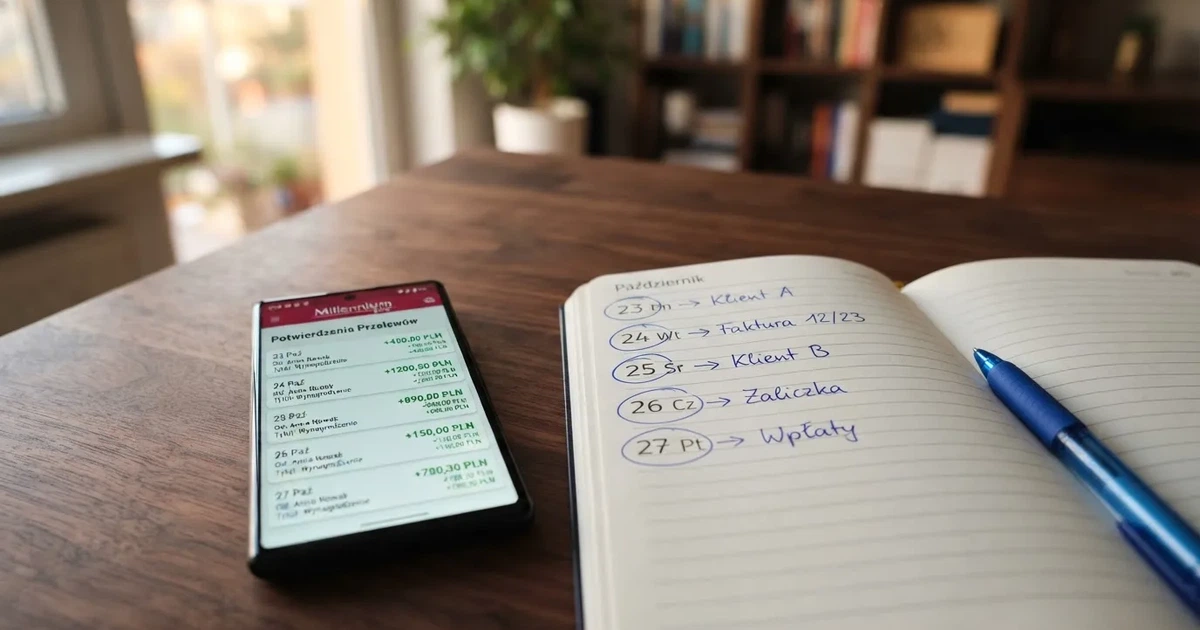 Millennium
Potwierdzenia Przelewów
23 Paź
+400,00 PLN
Od: Anna Nowak
24 Paź
+1200,50 PLN
Tytuł: Wynagrodzenie
+890,00 PLN
Od: Anna Nowak
Tytuł: Wynagrodzenie
+150,00 PLN
Od: Anna Nowak
Tytuł: Wynagrodzenie
27 Paź
+780,30 PLN
Od: Anna Nowak
Tytuł: Wynagrodzenie
Październik
23 Pn → Klient A
24 Wt → Faktura 12/23
25 Śr → Klient B
26 Cz → Zaliczka
27 Pt → Wpłaty